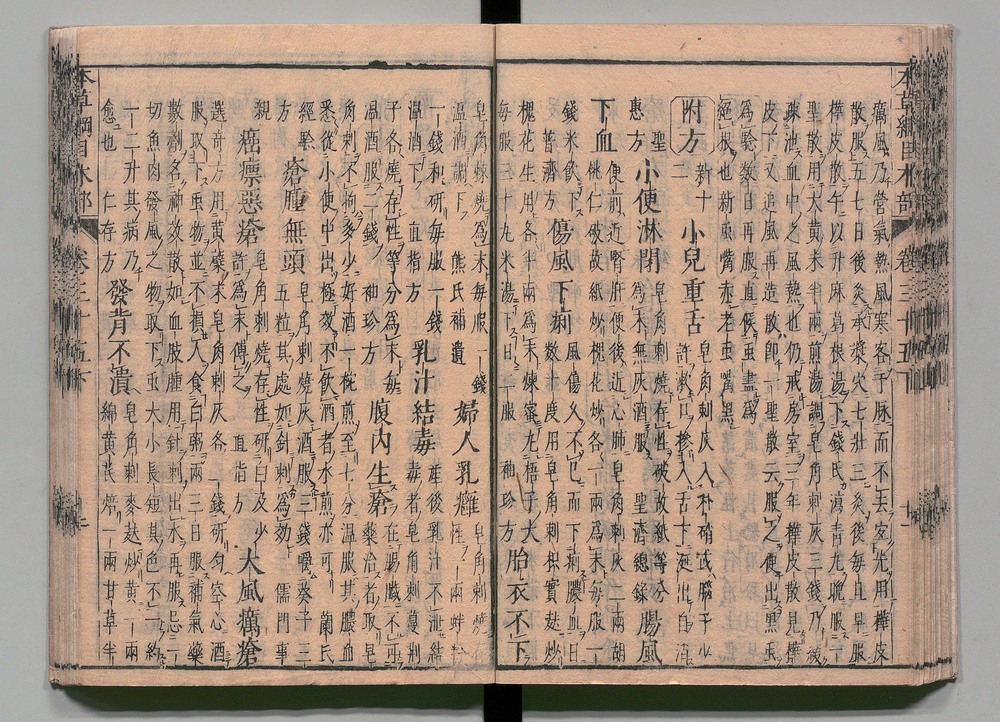 癘風乃營氣熱風寒客于脉而不去宜先用樺皮
散服五七日後灸承漿穴七壯三灸後每旦早服
樺皮散午以升麻葛根湯下錢氏瀉青丸晚服二
聖散用大黃末半兩煎湯調皂角刺灰三錢乃緩
疎泄血中之風熱也仍戒房室三年樺皮散見樺
皮下又追風再造散即二聖散云服之便出黑虫
為驗數日再服直候虫盡為
絕根也新虫嘴赤老虫嘴黑
附方 新十二 小兒重舌 皂角刺灰入朴硝或腦子少許漱口摻入舌下涎出自消
聖惠方 小便淋閉 皂角刺燒存性破故紙等分為末無灰酒服 聖濟總錄 腸風
下血 便前近腎肝便後近心肺皂角刺灰二兩胡桃仁破故紙炒槐花炒各一兩為末每服一
錢米飲下 普濟方 傷風下痢 風傷久不已而下痢膿血日數度用皂角刺枳實麩炒
槐花生用各半兩為末煉蜜丸梧子大
每服三十丸米湯下日一服 袖珍方 胎衣不下
皂角棘燒為末每服一錢
溫酒調下 熊氏補遺 婦人乳癰 皂角刺燒存性一兩蚌粉
一錢和研每服一錢
溫酒下 直指方 乳汁結毒 產後乳汁不泄結毒者皂角刺蔓荊
子各燒存性等分為末每
溫酒服二錢 袖珍方 腹內生瘡 在腸臟不可藥治者取皂
角刺不拘多少好酒一椀煎至七分溫服其膿血
悉從小便中出極效不飲酒者水煎亦可 蘭氏
經驗方 瘡腫無頭 皂角刺燒灰酒服三錢嚼葵子三五粒其處如針刺為效 儒門事
親 癌瘭惡瘡 皂角刺燒存性研白及少許為末傅之 直指方 大風癘瘡
選奇方用黃蘗末皂角刺灰各三錢研勻空心酒
服取下虫並不損人食白粥兩三日服補氣藥
數劑名神效散如血肢腫用針刺出水再服忌一
切魚肉發風之物取下虫大小長短其色不一約
一二升其病乃
愈也 仁存方 發背不潰 皂角刺麥麩炒黃一兩綿黃芪焙一兩甘草半